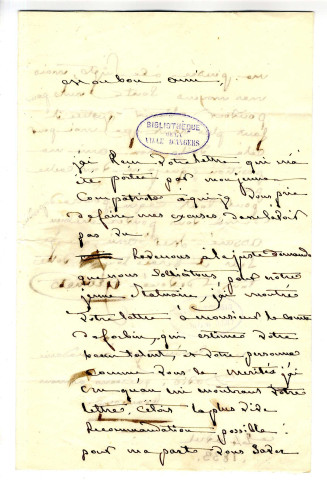 mon bon ami,
BIBLIOTHÈQUE
DE LA
VILLE D'ANGERS
j'ai reçu votre lettre qui m'a
été portée par mon jeune
Compatriote à qui je vous prie
de faire mes excuses de ne l'avoir
pas vu
Revenons à la juste demande
que nous sollicitons pour notre
jeune Statuaire, j'ai montré
votre lettre à monsieur le comte
de forbin, qui estime votre
beau talent, et votre personne
comme vous le meritez j'ai
cru qu'en lui montrant votre
lettre, c'etois la plus vive
Recommandation possible :
pour ma part vous savez